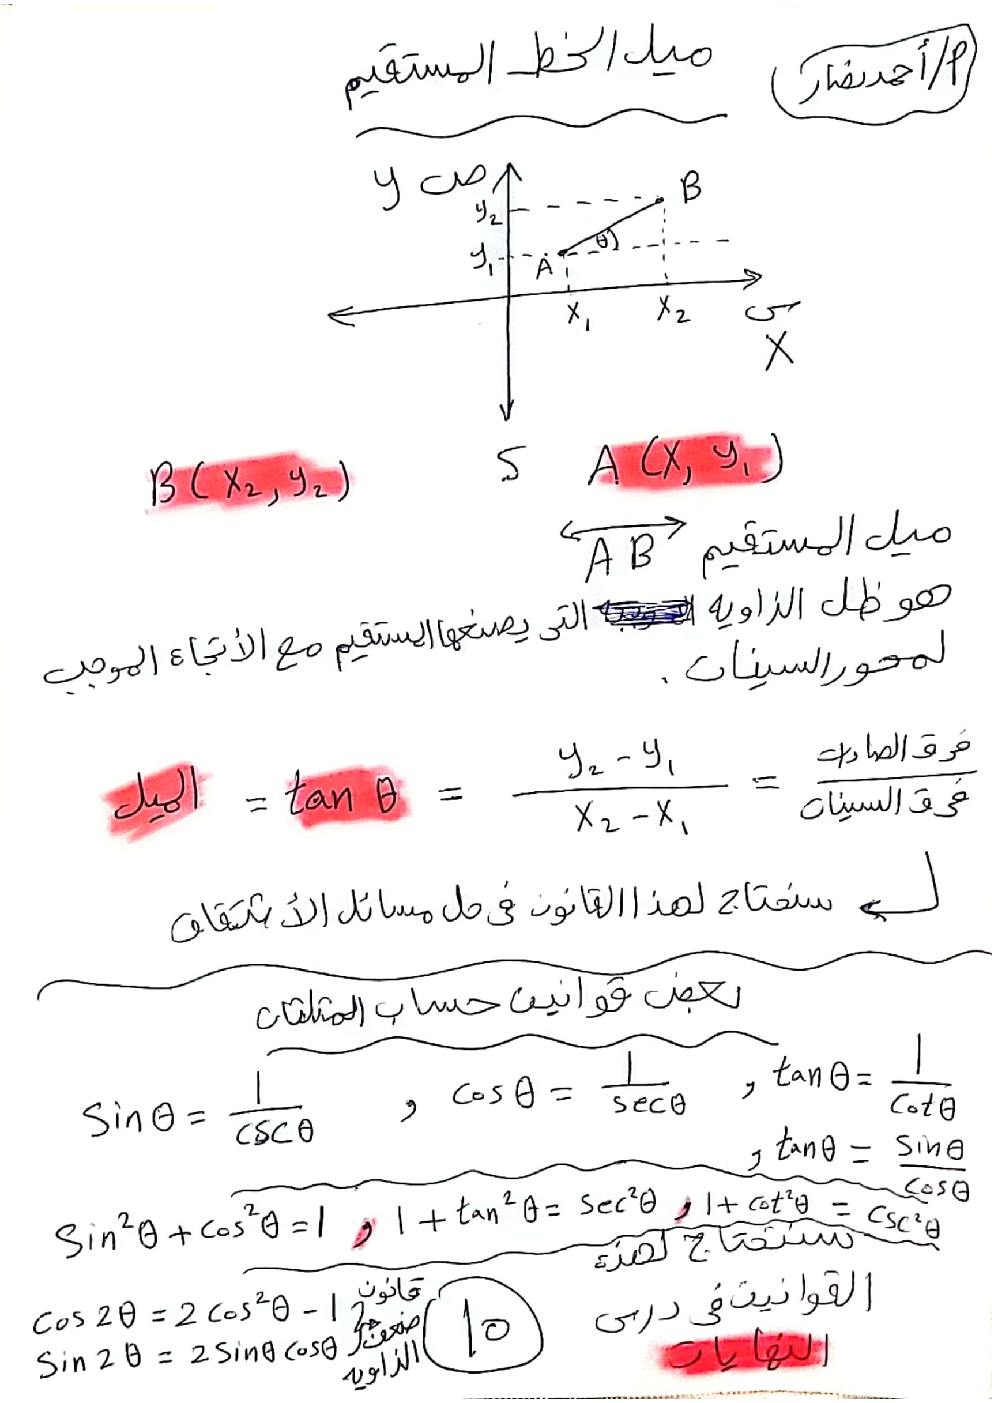 م/أحمد نصار
ميل الخط المستقيم
y ص
B
y₂
y₁
A
θ
x₁
x₂
س
X
B(x₂, y₂) و A(x, y₁)
ميل المستقيم AB
هو ظل الزاويه التى يصنعها المستقيم مع الأتجاه الموجب
لمحور السينات.
الميل = tan θ = (y₂ - y₁)/(x₂ - x₁) = فرق الصادات/فرق السينات
سنحتاج لهذا القانون فى حل مسائل الأشتقاق
بعض قوانين حساب المثلثات
Sin θ = 1/csc θ , cos θ = 1/sec θ , tan θ = 1/cot θ
, tan θ = sin θ/cos θ
Sin²θ + cos²θ = 1 , 1 + tan²θ = sec²θ , 1 + cot²θ = csc²θ
سنحتاج لهذه
القوانين فى درس
النهايات
cos 2θ = 2 cos²θ - 1
Sin 2θ = 2 sin θ cos θ
قانون
ضعف
الزاويه
10